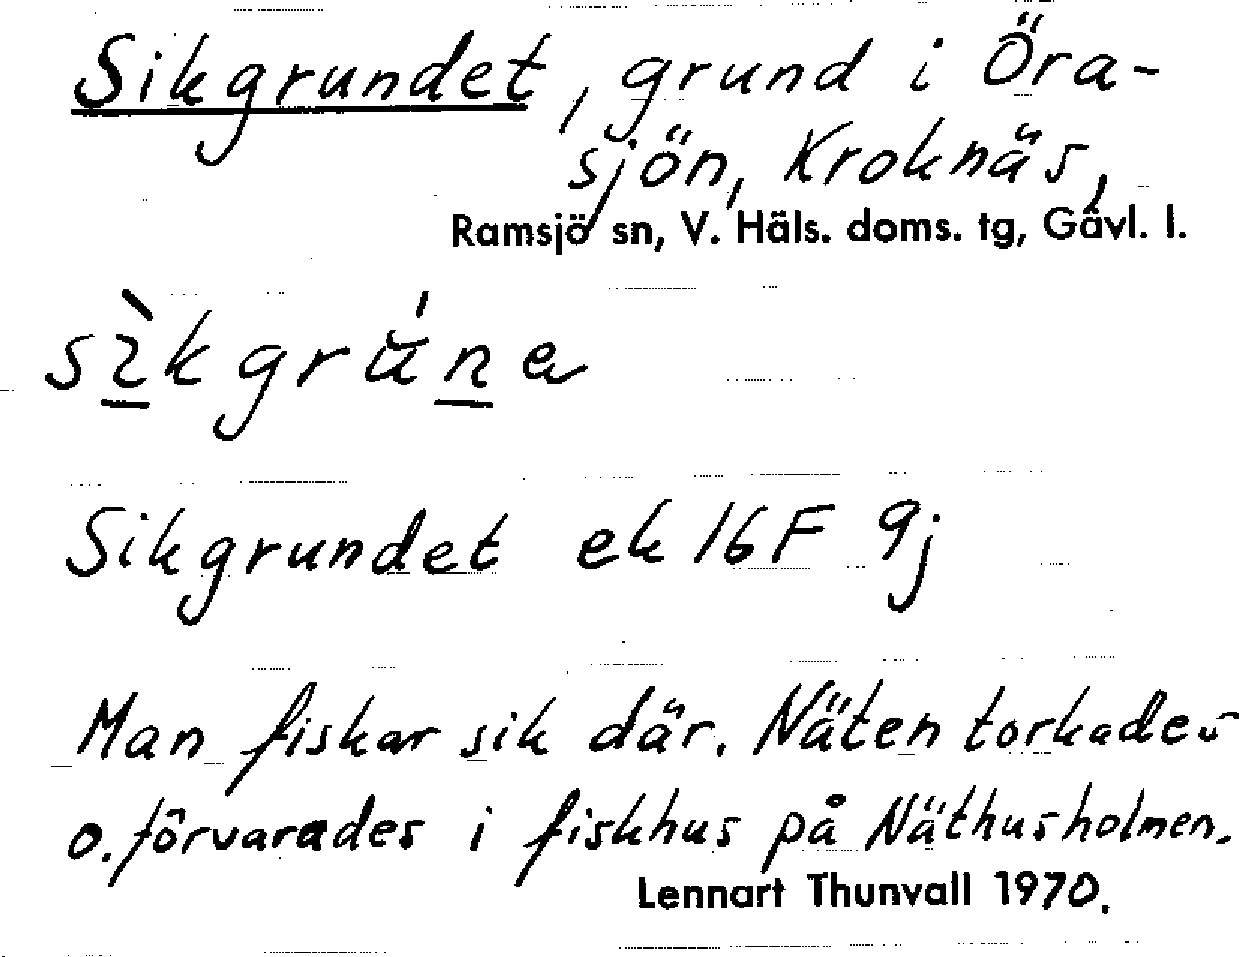 Sikgrundet, grund i Öra-
sjön, Kroknäs,
Ramsjö sn, V. Häls. doms. tg, Gävl. l.
Sikgrundet ek 16F 9j
Man fiskar sik där. Näten torkades
o. förvarades i fiskhus på Näthusholmen.
Lennart Thunvall 1970.